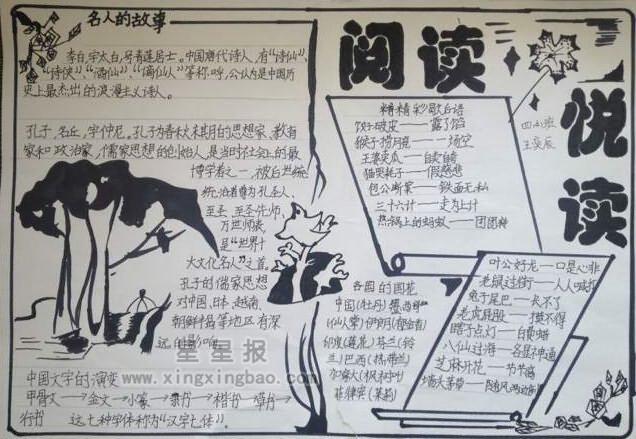 名人的故事
李白,字太白,号青莲居士。中国唐代诗人,有“诗仙”、
“诗侠”、“酒仙”、“谪仙人”等称呼,公认为是中国历
史上最杰出的浪漫主义诗人。
孔子,名丘,字仲尼。孔子为春秋末期的思想家、教育
家和政治家,儒家思想的创始人,是当时社会上的最
博学者之一,被后世统
统治者尊为孔圣人、
至圣、至圣先师、
万世师表,
是“世界十
大文化名人”之首。
孔子的儒家思想
对中国、日本、越南、
朝鲜半岛等地区有深
远的影响。
中国文字的演变
甲骨文→金文→小篆→隶书→楷书→草书→
行书 这七种字体称为“汉字七体”。
阅读
悦
读
四
班
王
辰
精精彩歇后语
饺子破皮——露了馅
猴子捞月亮——一场空
王婆卖瓜——自卖自夸
猫哭耗子——假慈悲
包公断案——铁面无私
三十六计——走为上计
热锅上的蚂蚁——团团转
叶公好龙——口是心非
老鼠过街——人人喊打
兔子尾巴——长不了
老虎屁股——摸不得
瞎子点灯——白费蜡
八仙过海——各显神通
芝麻开花——节节高
墙头茅草——随风两边倒
各国的国花
中国(牡丹)墨西哥
(仙人掌)伊朗(郁金香)
印度(莲花)芬兰(铃
兰)巴西(
加拿大(枫树叶)
菲律宾(茉莉)
星星报
www.xingxingbao.com